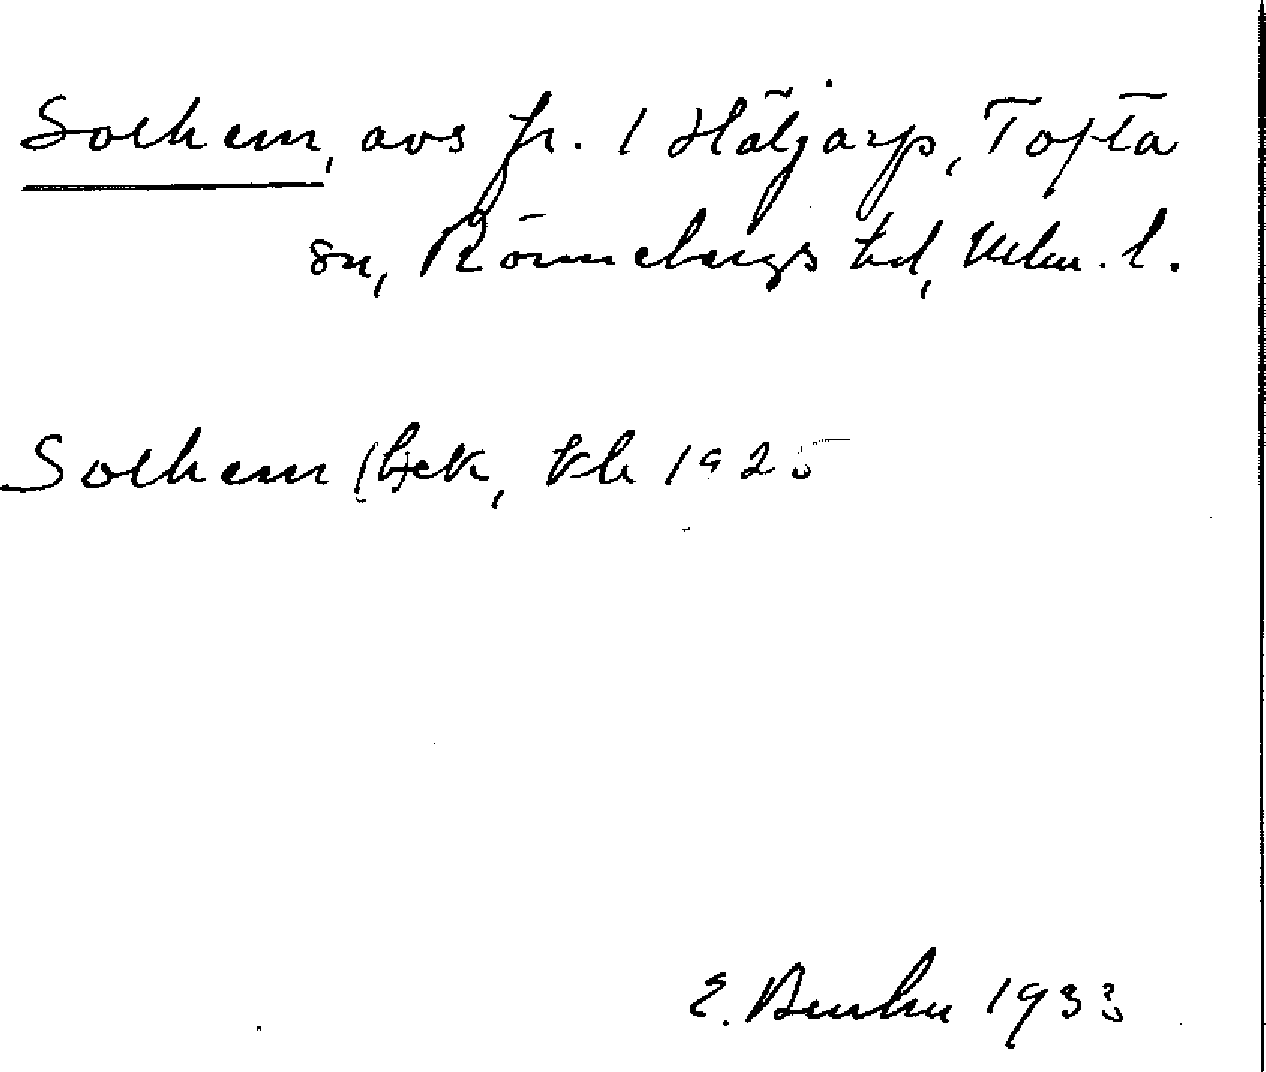 Solhem, avs fr. 1 Häljarp, Tofta
sn, Rönnebergs hd, Mlm. l.
Solhem (bek, tlr 1925
E. Bunke 1933